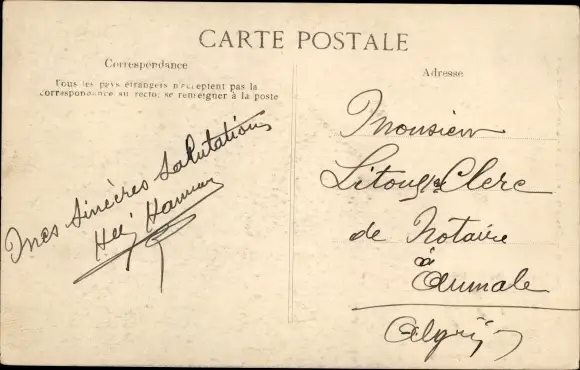 CARTE POSTALE
Correspondance
Tous les pays étrangers n'acceptent pas la
correspondance au recto, se renseigner à la poste
Mes Sincères Salutations
Adresse
Monsieur
Clerc
de Notaire
à
Aumale